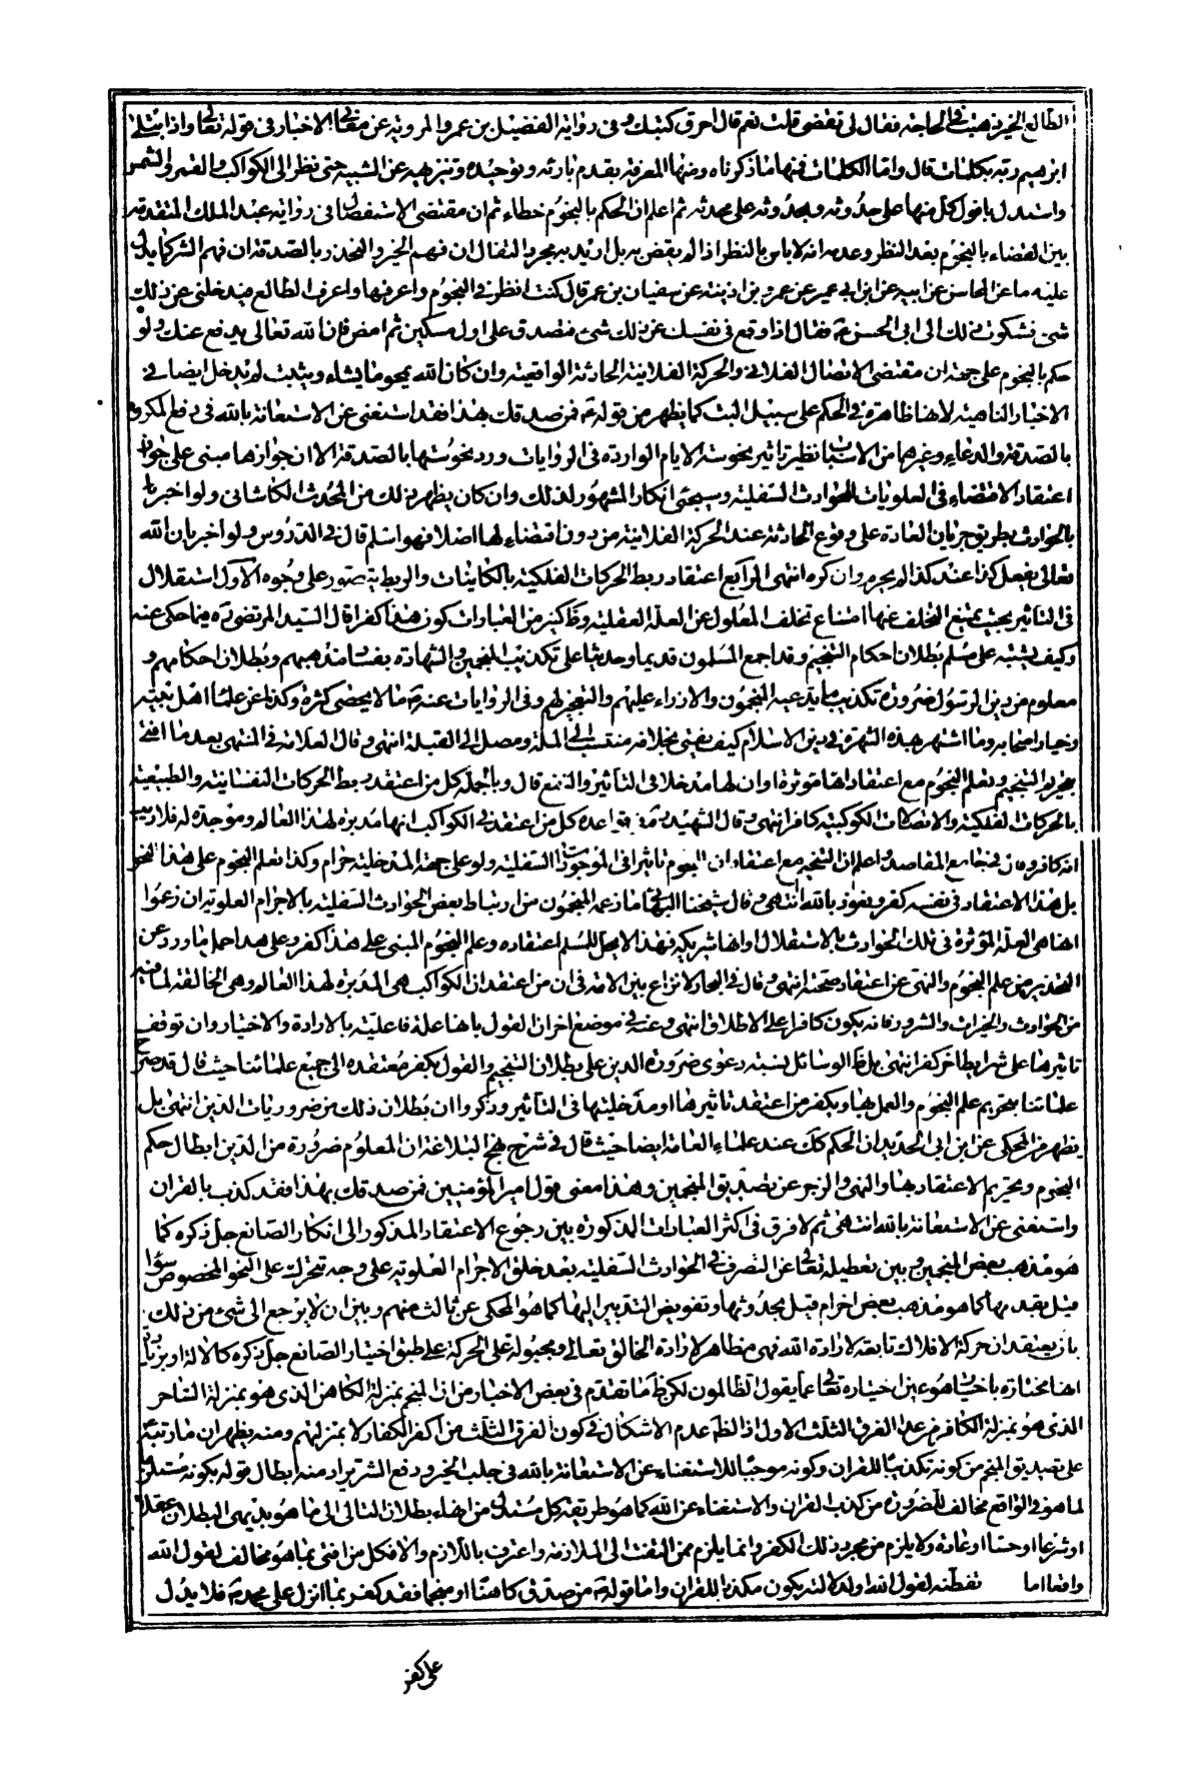 الطالع الخير ذهبت في الحاجة فقال لي تقضي قلت نعم قال احرق كتبك وفي رواية المفضل بن عمرو المروية عن معاني الاخبار في قوله تعالى واذ ابتلى
ابرهيم ربه بكلمات قال واما الكلمات فمنها ما ذكرناه ومنها المعرفة بقدم بارئه وتوحيده وتنزيهه عن الشبيه حتى نظر الى الكواكب والقمر والشمس
واستدل بافول كل منها على حدوثه وبحدوثه على محدثه ثم اعلم ان الحكم بالنجوم خطاء ثم ان مقتضى الاستفصال في رواية عبد الملك المتقدمة
بين القضاء بالنجوم بعد النظر وعدمه انه لا باس بالنظر اذا لم يقض به بل اريد به مجرد التفال ان فهم الخير والتحذر بالصدقة ان فهم الشر كما يدل
عليه ما عن المحاسن عن ابيه عن ابن ابي عمير عن عمرو بن اذينة عن سفيان بن عمر قال كنت انظر في النجوم واعرفها واعرف الطالع فيدخلني عن ذلك
شئ فشكوت ذلك الى ابي الحسن ع فقال اذا وقع في نفسك عن ذلك شئ فتصدق على اول مسكين ثم امض فان الله تعالى يدفع عنك ولو
حكم بالنجوم على جهة ان مقتضى الاتصال الفلاني والحركة الفلانية الحادثة الواقعية وان كان الله يمحو ما يشاء ويثبت لم يدخل ايضا في
الاخبار الناهية لانها ظاهرة في الحكم على سبيل البت كما يظهر من قوله ع فمن صدقك بهذا فقد استغنى عن الاستعانة بالله في دفع المكروه
بالصدقة والدعاء وغيرهما من الاسباب نظير تاثير نحوسة الايام الواردة في الروايات ورد نحوستها بالصدقة الا ان جوازها مبني على جواز
اعتقاد الاقتضاء في العلويات للحوادث السفلية وسيجئ انكار المشهور لذلك وان كان يظهر ذلك من المحدث الكاشاني ولو اخبر
بالحوادث بطريق جريان العادة على وقوع الحادثة عند الحركة الفلانية من دون اقتضاء لها اصلا فهو اسلم قال في الدروس ولو اخبر بان الله
تعالى يفعل كذا عند كذا لم يحرم وان كره انتهى الرابع اعتقاد ربط الحركات الفلكية بالكائنات والربط يتصور على وجوه الاول استقلال
في التاثير بحيث يمتنع التخلف عنها امتناع تخلف المعلول عن العلة العقلية وظ كثير من العبارات كون هذا كفرا قال السيد المرتضى ره فيما حكى عنه
وكيف يشتبه على مسلم بطلان احكام التنجيم وقد اجمع المسلمون قديما وحديثا على تكذيب المنجمين والشهادة بفساد مذهبهم وبطلان احكامهم و
معلوم من دين الرسول ضرورة تكذيب ما يدعيه المنجمون والازراء عليهم والتعجيز لهم وفي الروايات عنه ع ما لا يحصى كثرة وكذا عن علماء اهل بيته
وخيار اصحابه وما اشتهر بهذه الشهرة في دين الاسلام كيف يفتي بخلافه منتسب الى الملة ومصل الى القبلة انتهى وقال العلامة في المنتهى بعد ما افتى
بتحريم التنجيم وتعلم النجوم مع اعتقاد انها مؤثرة او ان لها مدخلا في التاثير والنفع قال وبالجملة كل من اعتقد ربط الحركات النفسانية والطبيعية
بالحركات الفلكية والاتصالات الكوكبية كافر انتهى وقال الشهيد ره في قواعده كل من اعتقد في الكواكب انها مدبرة لهذا العالم وموجدة له فلا ريب
انه كافر وقال في جامع المقاصد واعلم ان التنجيم مع اعتقاد ان للنجوم تاثيرا في الموجودات السفلية ولو على جهة المدخلية حرام وكذا تعلم النجوم على هذا النحو
بل هذا الاعتقاد في نفسه كفر ونعوذ بالله انتهى وقال شيخنا البهائي ما زعمه المنجمون من ارتباط بعض الحوادث السفلية بالاجرام العلوية ان زعموا
انها هي العلة المؤثرة في تلك الحوادث بالاستقلال او انها شريكة فهذا لا يحل للمسلم اعتقاده وعلم النجوم المبني على هذا كفر وعلى هذا حمل ما ورد عن
التحذير من علم النجوم والنهي عن اعتقاد صحته انتهى وقال في البحار لا نزاع بين الامة في ان من اعتقد ان الكواكب هي المدبرة لهذا العالم وهي الخالقة لما فيه
من الحوادث والخيرات والشرور فانه يكون كافرا على الاطلاق انتهى وعنه في موضع اخر ان القول بانها علة فاعلية بالارادة والاختيار وان توقف
تاثيرها على شرايط اخر كفر انتهى بل ظ الوسائل نسبة دعوى ضرورة الدين على بطلان التنجيم والقول بكفر معتقده الى جميع علمائنا حيث قال قد صرح
علمائنا بتحريم علم النجوم والعمل بها وبكفر من اعتقد تاثيرها او مدخليتها في التاثير وذكروا ان بطلان ذلك من ضروريات الدين انتهى بل
يظهر من المحكى عن ابن ابي الحديد ان الحكم كك عند علماء العامة ايضا حيث قال في شرح نهج البلاغة ان المعلوم ضرورة من الدين ابطال حكم
النجوم وتحريم الاعتقاد بها والنهي والزجر عن تصديق المنجمين وهذا معنى قول امير المؤمنين فمن صدقك بهذا فقد كذب بالقران
واستغنى عن الاستعانة بالله انتهى ثم لا فرق في اكثر العبارات المذكورة بين رجوع الاعتقاد المذكور الى انكار الصانع جل ذكره كما
هو مذهب بعض المنجمين وبين تعطيله تعالى عن التصرف في الحوادث السفلية بعد خلق الاجرام العلوية على وجه تتحرك على النحو المخصوص سواء
قيل بقدمها كما هو مذهب بعض اخر ام قيل بحدوثها وتفويض التدبير اليها كما هو المحكى عن ثالث منهم وبين ان لا يرجع الى شئ من ذلك
بان يعتقد ان حركة الافلاك تابعة لارادة الله فهي مظاهر لارادة الخالق تعالى ومجبولة على الحركة على طبق اختيار الصانع جل ذكره كالالة او بزيادة
انها مختارة باختيار هو عين اختياره تعالى عما يقول الظالمون لكن ظ ما تقدم في بعض الاخبار من ان المنجم بمنزلة الكاهن الذي هو بمنزلة الساحر
الذي هو بمنزلة الكافر من عدا الفرق الثلث الاول اذ الظ عدم الاشكال في كون الفرق الثلث من اكفر الكفار لا بمنزلتهم ومنه يظهر ان ما رتبه ع
على تصديق المنجم من كونه تكذيبا للقران وكونه موجبا للاستغناء عن الاستعانة بالله في جلب الخير ودفع الشر يراد منه ابطال قوله بكونه مستلزما
لما هو في الواقع مخالف للضرورة من كذب القران والاستغناء عن الله كما هو طريقة كل مستدل من انهاء بطلان التالي الى ما هو بديهي البطلان عقلا
او شرعا او حسا او عادة ولا يلزم من مجرد ذلك الكفر وانما يلزم ممن التفت الى الملازمة واعترف باللازم والا فكل من افتى بما هو مخالف لقول الله
واقعا اما تفطنه لقول الله او لدلالته يكون مكذبا للقران واما قوله ع من صدق كاهنا او منجما فقد كفر بما انزل على محمد ص فلا يدل
على كفر